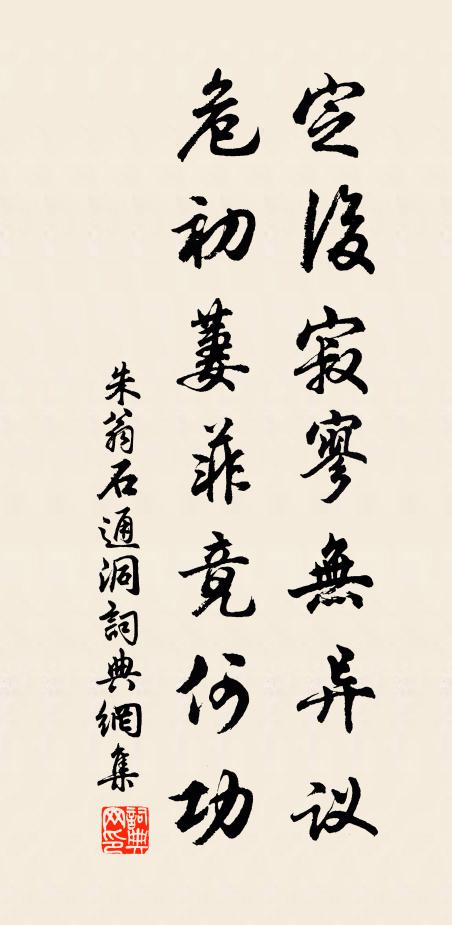 定後寂寥無异议
危初萋菲竟何功
朱翁石通洞詞典網集
詞典
网印